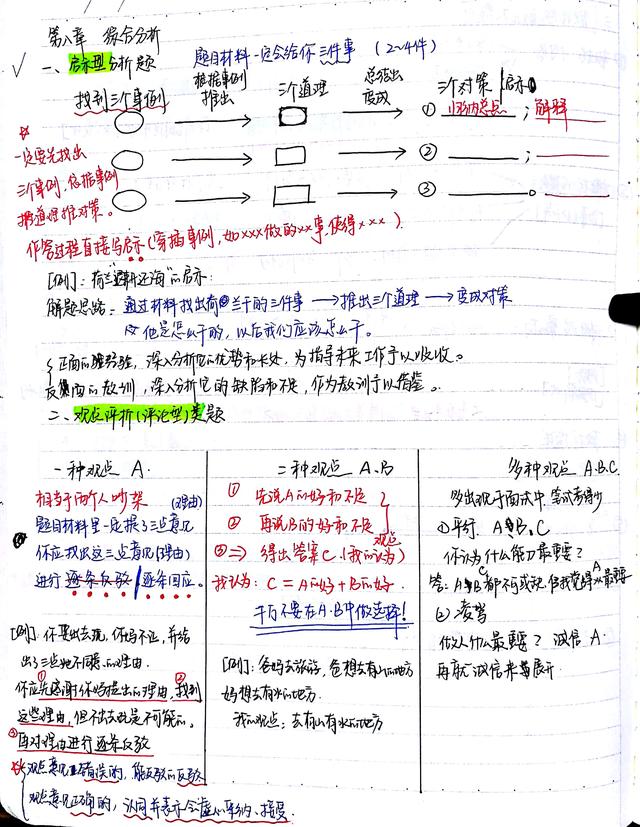 第八章 综合分析
一、启示型分析题 题目材料一定会给你三件事 (2~4件)
找到三个事例 根据事例推出 三个道理 总结出变成 三个对策/启示
① 归纳总点；解释
② ；
③ 。
一定要先找出
三个事例，依据事例
推道理推对策。
作答过程直接写启示(穿插事例，如xxx做的xx事，使得xxx)。
[例]：荷兰"退耕还海"的启示：
解题思路：通过材料找出荷兰干的三件事 → 推出三个道理 → 变成对策
他是怎么干的，以后我们应该怎么干。
正面的经验，深入分析它的优势和长处，为指导未来工作予以吸收。
反面的教训，深入分析它的缺陷和不足，作为教训予以借鉴。
二、观点评析(评论型)类题
一种观点 A.
相当于两个人吵架 (理由)
题目材料里一定提了三点意见
你应找出这三点意见(理由)
进行逐条反驳/逐条回应。
[例]：你要出去玩，你妈不让，并给
出了三点她不同意的理由.
你应①先感谢你妈提出的理由，②找到
这些理由，但不出去玩是不可能的。
③再对理由进行逐条反驳
观点意见错误的，能反驳的反驳
观点意见正确的，认同并表示会虚心采纳、接受.
二种观点 A.B
① 先说A的好和不足
② 再说B的好和不足
③ ⇒ 得出答案C.(我认为) 观点
我认为：C = A的好+B的好
千万不要在A.B中做选择！
[例]：爸妈去旅游，爸想去有山的地方
妈想去有水的地方.
我的观点：去有山有水的地方
多种观点 A.B.C.
多出现于面试中，笔试考得少
①平行. A、B、C
你认为什么能力最重要？
答：A B C都不可或缺，但我觉得A最重要
②凌驾
做人什么最重要？ 诚信 A.
再就"诚信"来展开